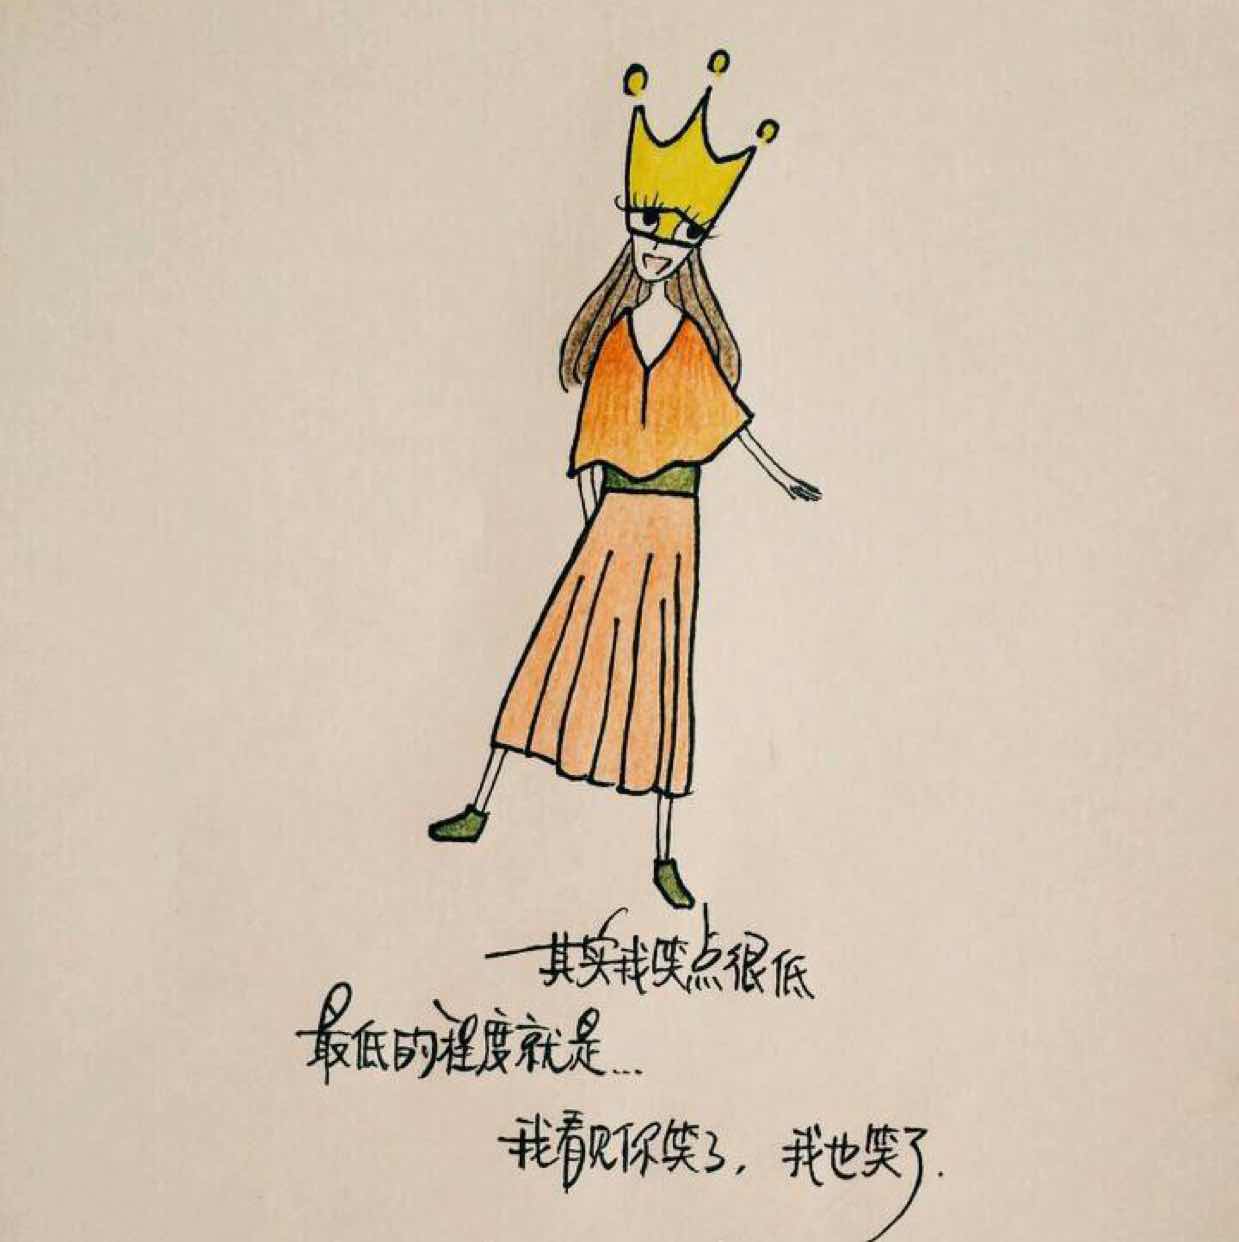 其实我笑点很低
最低的程度就是...
我看见你笑了，我也笑了.